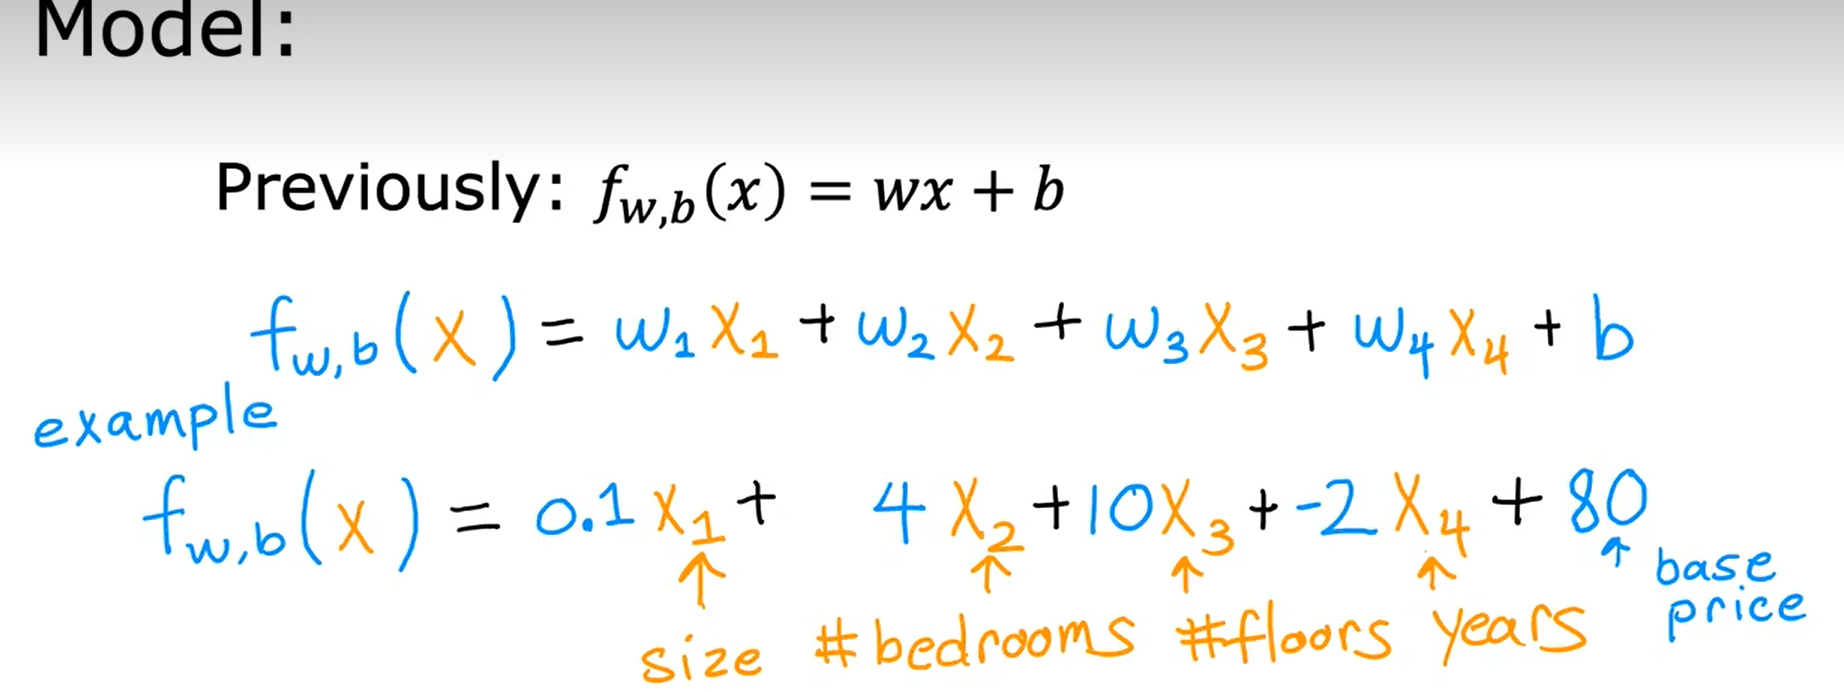 Model:
Previously: f_{w,b}(x) = wx + b
f_{w,b}(x) = w₁x₁ + w₂x₂ + w₃x₃ + w₄x₄ + b
example
f_{w,b}(x) = 0.1x₁ + 4x₂ + 10x₃ + -2x₄ + 80
↑ ↑ ↑ ↑ ↑ base price
size #bedrooms #floors years